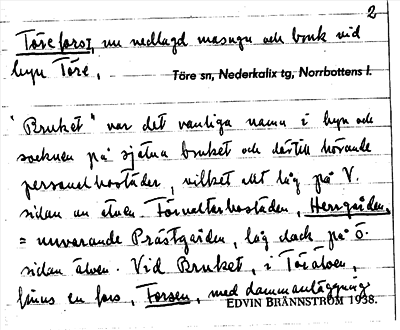 2
Töreforsz, nu nedlagd masugn och bruk vid
byn Töre.
Töre sn, Nederkalix tg, Norrbottens l.
"Bruket" var det vanliga namn i byn och
socknen på själva bruket och därtill hörande
personalbostäder, vilket allt låg på V.
sidan av älven. Förvaltarbostaden, Herrgården,
= nuvarande Prästgården, låg dock på Ö.
sidan älven. Vid Bruket, i Töreälven,
finns en fors, Forsen, med dammanläggning
EDVIN BRÄNNSTRÖM 1938.